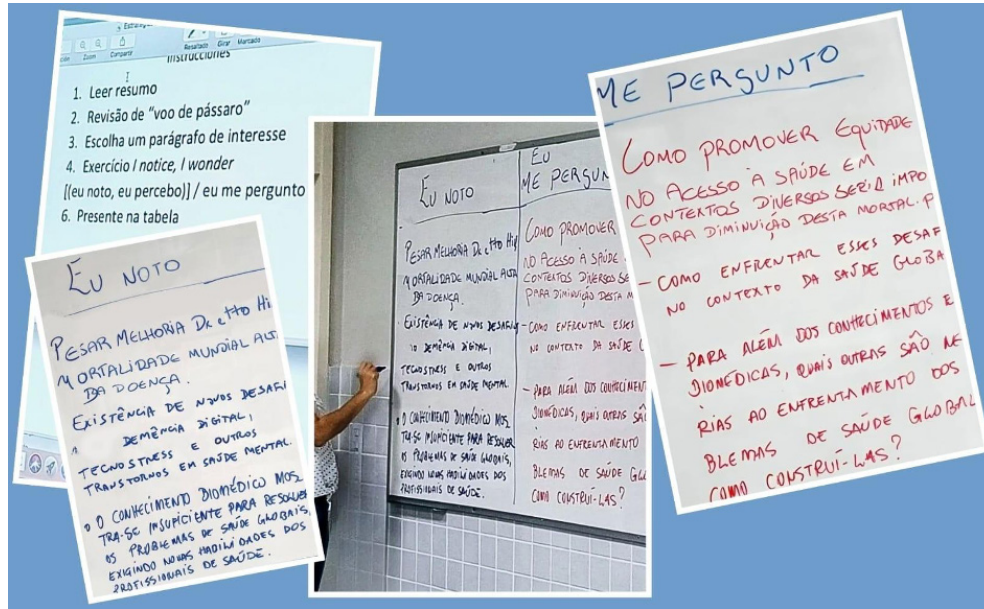 Zoom
Compartir
Resaltado
Girar
Marcado
Instrucciones
1. Leer resumo
2. Revisão de “voo de pássaro”
3. Escolha um parágrafo de interesse
4. Exercício I notice, I wonder
[(eu noto, eu percebo)] / eu me pergunto
6. Presente na tabela
EU NOTO
PESAR MELHORIA
MORTALIDADE MUNDIAL ALT
DA DOENÇA.
EXISTÊNCIA DE NOVOS DESAFI
DEMÊNCIA DIGITAL,
TECNOSTRESS E OUTROS
TRANSTORNOS EM SAÚDE MENTAL.
• O CONHECIMENTO BIOMÉDICO MOS
TRA-SE INSUFICIENTE PARA RESOLVER
OS PROBLEMAS DE SAÚDE GLOBAIS,
EXIGINDO NOVAS HABILIDADES DOS
PROFISSIONAIS DE SAÚDE.
EU NOTO
PESAR MELHORIA
MORTALIDADE MUNDIAL ALTA
DA DOENÇA.
• EXISTÊNCIA DE NOVOS DESAFI
DEMÊNCIA DIGITAL,
TECNOSTRESS E OUTROS
TRANSTORNOS EM SAÚDE MENTAL.
• O CONHECIMENTO BIOMÉDICO MOS
TRA-SE INSUFICIENTE PARA RESOLVER
OS PROBLEMAS DE SAÚDE GLOBAIS,
EXIGINDO NOVAS HABILIDADES DOS
PROFISSIONAIS DE SAÚDE.
EU
ME PERGUN
COMO PROMOVER
NO ACESSO À SAÚDE
CONTEXTOS DIVERSOS SE
PARA DIMINUIÇÃO DESTA M
- COMO ENFRENTAR ESSES
NO CONTEXTO DA SAÚDE G
- PARA ALÉM DOS CONHECIMENT
BIOMÉDICAS, QUAIS OUTRAS SÃ
RIAS AO ENFRENTAMENTO
BLEMAS DE SAÚDE GL
COMO CONSTRUÍ-LAS?
ME PERGUNTO
COMO PROMOVER EQUIDADE
NO ACESSO À SAÚDE EM
CONTEXTOS DIVERSOS SERIA IMPO
PARA DIMINUIÇÃO DESTA MORTAL. P
- COMO ENFRENTAR ESSES DESAF
NO CONTEXTO DA SAÚDE GLOBA
- PARA ALÉM DOS CONHECIMENTOS E
BIOMÉDICAS, QUAIS OUTRAS SÃO NE
RIAS AO ENFRENTAMENTO DOS
BLEMAS DE SAÚDE GLOBAL
COMO CONSTRUÍ-LAS?